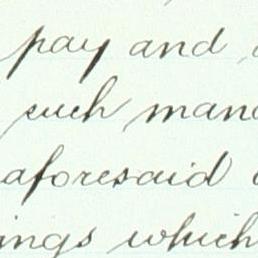 pay and
such man
aforesaid
ings which